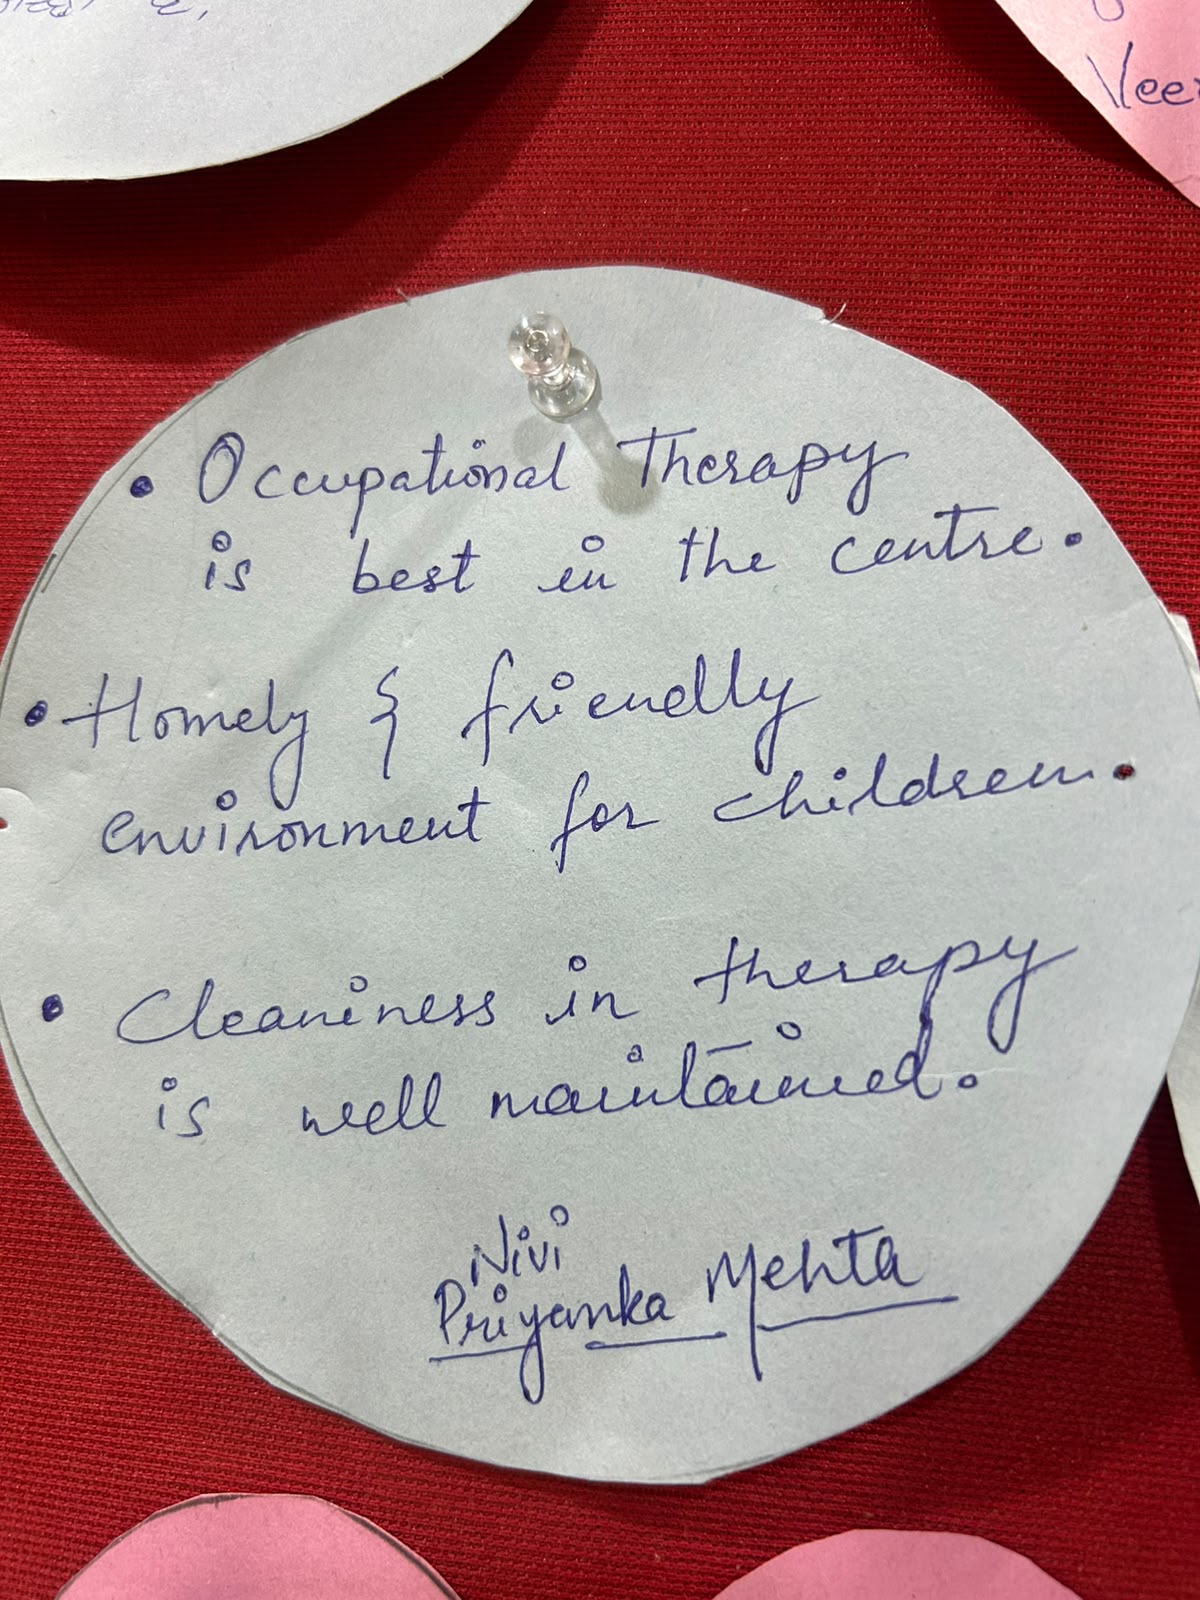 Vee
• Occupational Therapy
is best in the centre.
• Homely & friendly
environment for children.
• Cleaniness in therapy
is well maintained.
Nivi
Priyanka Mehta